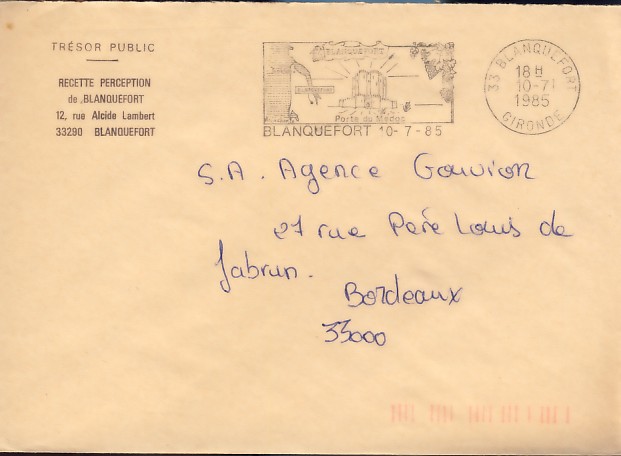 TRÉSOR PUBLIC
RECETTE PERCEPTION
de BLANQUEFORT
12, rue Alcide Lambert
33290 BLANQUEFORT
BLANQUEFORT
BLANQUEFORT
Porte du Médoc
BLANQUEFORT 10-7-85
33 BLANQUEFORT
18 H
10-7
1985
GIRONDE
S.A. Agence Gouvion
27 rue Père Louis de
Jabrun.
Bordeaux
33000